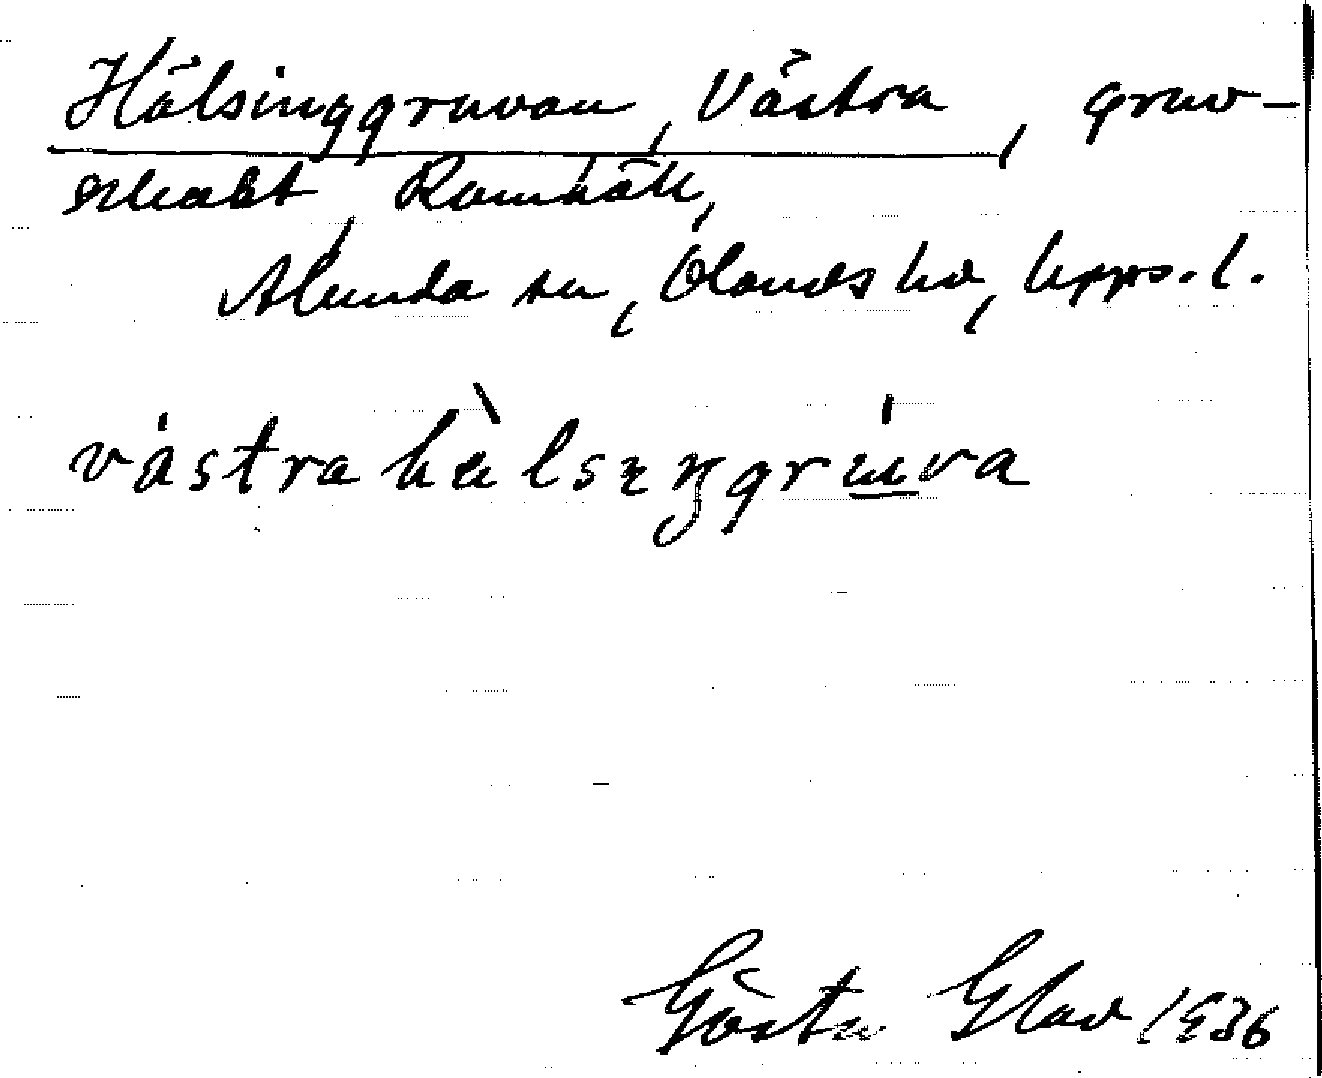 Hälsinggruvan, Västra, gruv-
schakt, Ramhäll,
Alunda sn, Olands hd, Upps. l.
västra hälsıŋgrùva
Gösta Glad 1936